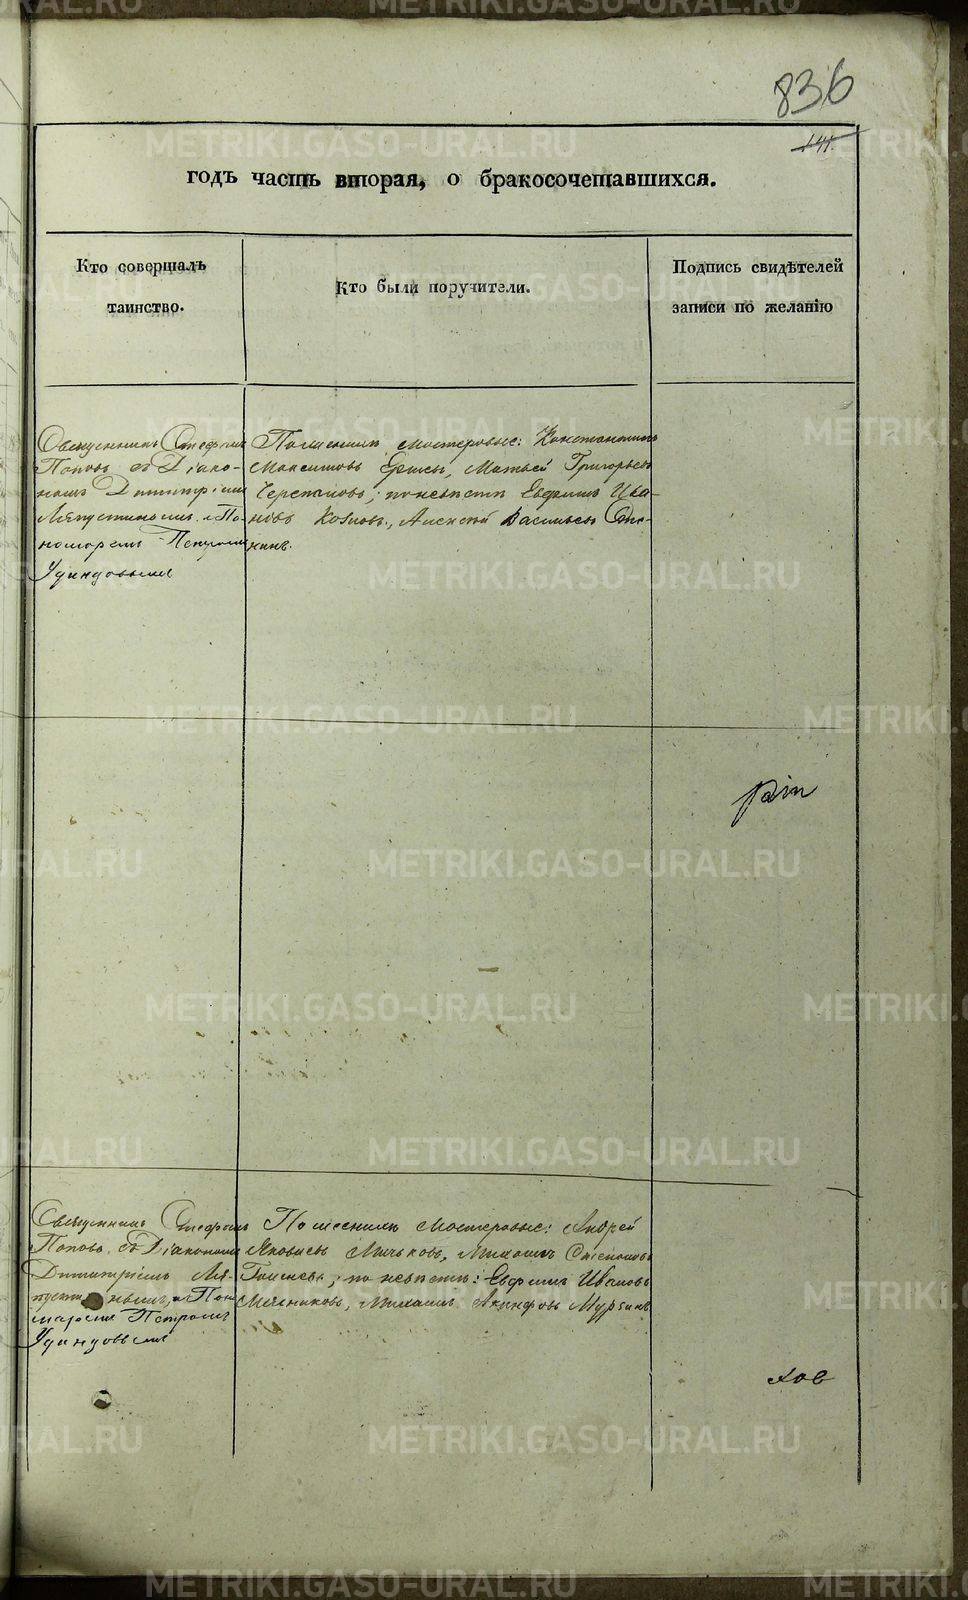 836
141.
годъ часть вторая, о бракосочетавшихся.
Кто совершалъ
таинство.
Кто были поручители.
Подпись свидѣтелей
записи по желанію
Священникъ Стефанъ
Поповъ съ Діако-
номъ Димитріемъ
Ляпустинымъ и По-
номаремъ Петромъ
Удинцовымъ
По женихѣ мастеровые: Константинъ
Максимовъ Матвей Григорьевъ
Черепановъ; по невѣстѣ Евфимъ Ива-
новъ Козловъ, Алексѣй Васильевъ
Священникъ Стефанъ
Поповъ съ Діакономъ
Димитріемъ Ля-
пустинымъ, и Поно-
маремъ Петромъ
Удинцовымъ
По женихѣ мастеровые: Андрей
Яковлевъ Михаилъ Степановъ
по невѣстѣ: Евфимъ Ивановъ
Мясниковъ, Михаилъ Акинфовъ Мурзинъ
ков
METRIKI.GASO-URAL.RU